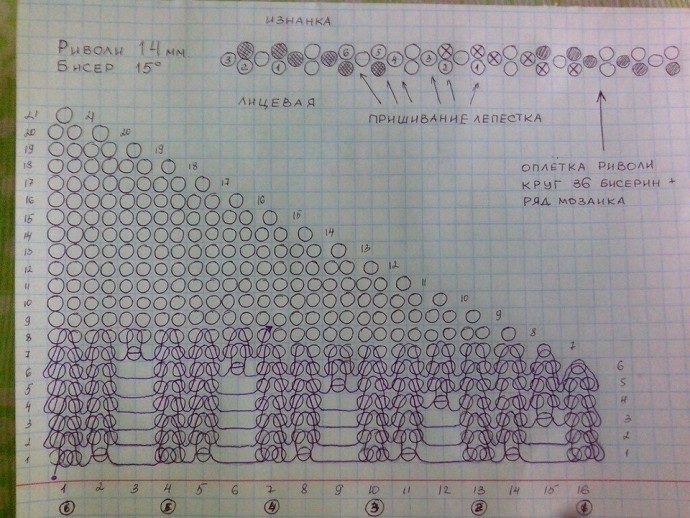 ИЗНАНКА
РИВОЛИ 14 ММ.
БИСЕР 15°
3 2 1 6 5 4 3 2 1
ЛИЦЕВАЯ
ПРИШИВАНИЕ ЛЕПЕСТКА
ОПЛЁТКА РИВОЛИ
КРУГ 36 БИСЕРИН +
РЯД МОЗАИКА
21 21
20 20
19 19
18 18
17 17
16 16
15 15
14 14
13 13
12 12
11 11
10 10
9 9
8 8
7 7
6 6
5 5
4 4
3 3
2 2
1 1
1 2 3 4 5 6 7 8 9 10 11 12 13 14 15 16
6 5 4 3 2 1